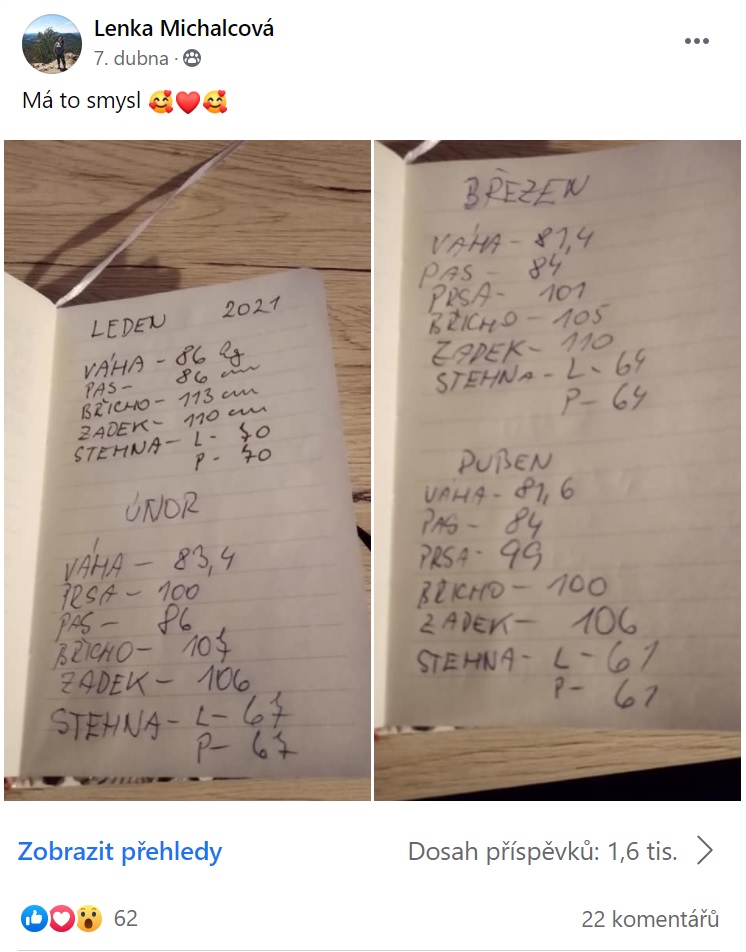 Lenka Michalcová
7. dubna
Má to smysl 🥰❤️🥰
LEDEN 2021
VÁHA - 86 kg
PAS - 86 cm
BŘICHO - 113 cm
ZADEK - 110 cm
STEHNA - L - 70
P - 70
ÚNOR
VÁHA - 83,4
PRSA - 100
PAS - 86
BŘICHO - 107
ZADEK - 106
STEHNA - L - 67
P - 67
BŘEZEN
VÁHA - 81,4
PAS - 84
PRSA - 101
BŘICHO - 105
ZADEK - 110
STEHNA - L - 64
P - 64
DUBEN
VÁHA - 81,6
PAS - 84
PRSA - 99
BŘICHO - 100
ZADEK - 106
STEHNA - L - 61
P - 61
Zobrazit přehledy
Dosah příspěvků: 1,6 tis.
62
22 komentářů